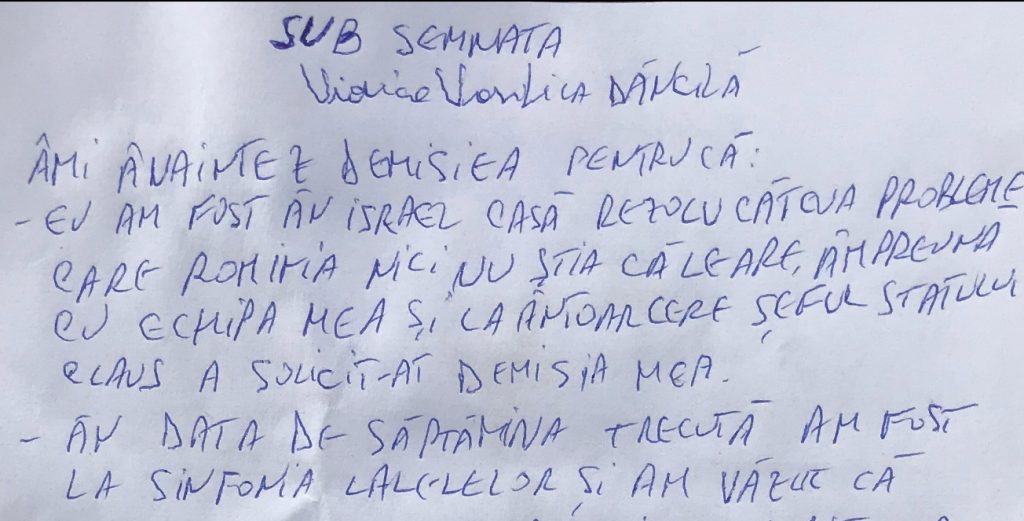 SUB SEMNATA
Viorica Vasilica DĂNCILĂ
ÂMI ÂNAINTEZ DEMISIEA PENTRUCĂ:
- EU AM FOST ÂN ISRAEL CASĂ REZOLU CÂTEVA PROBLEME
CARE ROMINIA NICI NU ȘTIA CĂ LEARE, ÂMPREUNA
CU ECHIPA MEA ȘI LA ÂNTOARCERE ȘEFUL STATULUI
CLAUS A SOLICIT-AT DEMISIA MEA.
- ÂN DATA DE SĂPTĂMINA TRECUTĂ AM FOST
LA SINFONIA LALELELOR ȘI AM VĂZUT CĂ